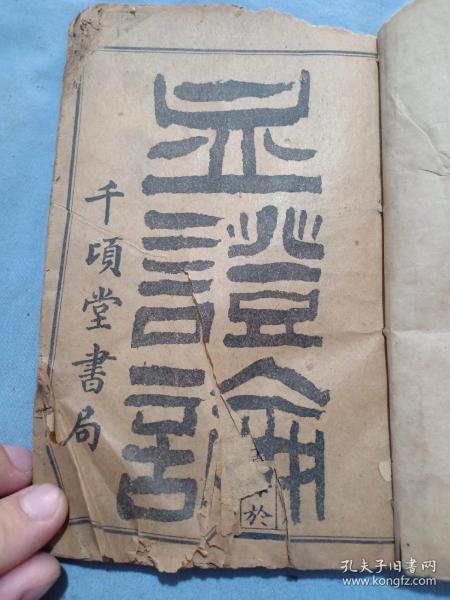 血證論
千頃堂書局
於
孔夫子旧书网
www.kongfz.com